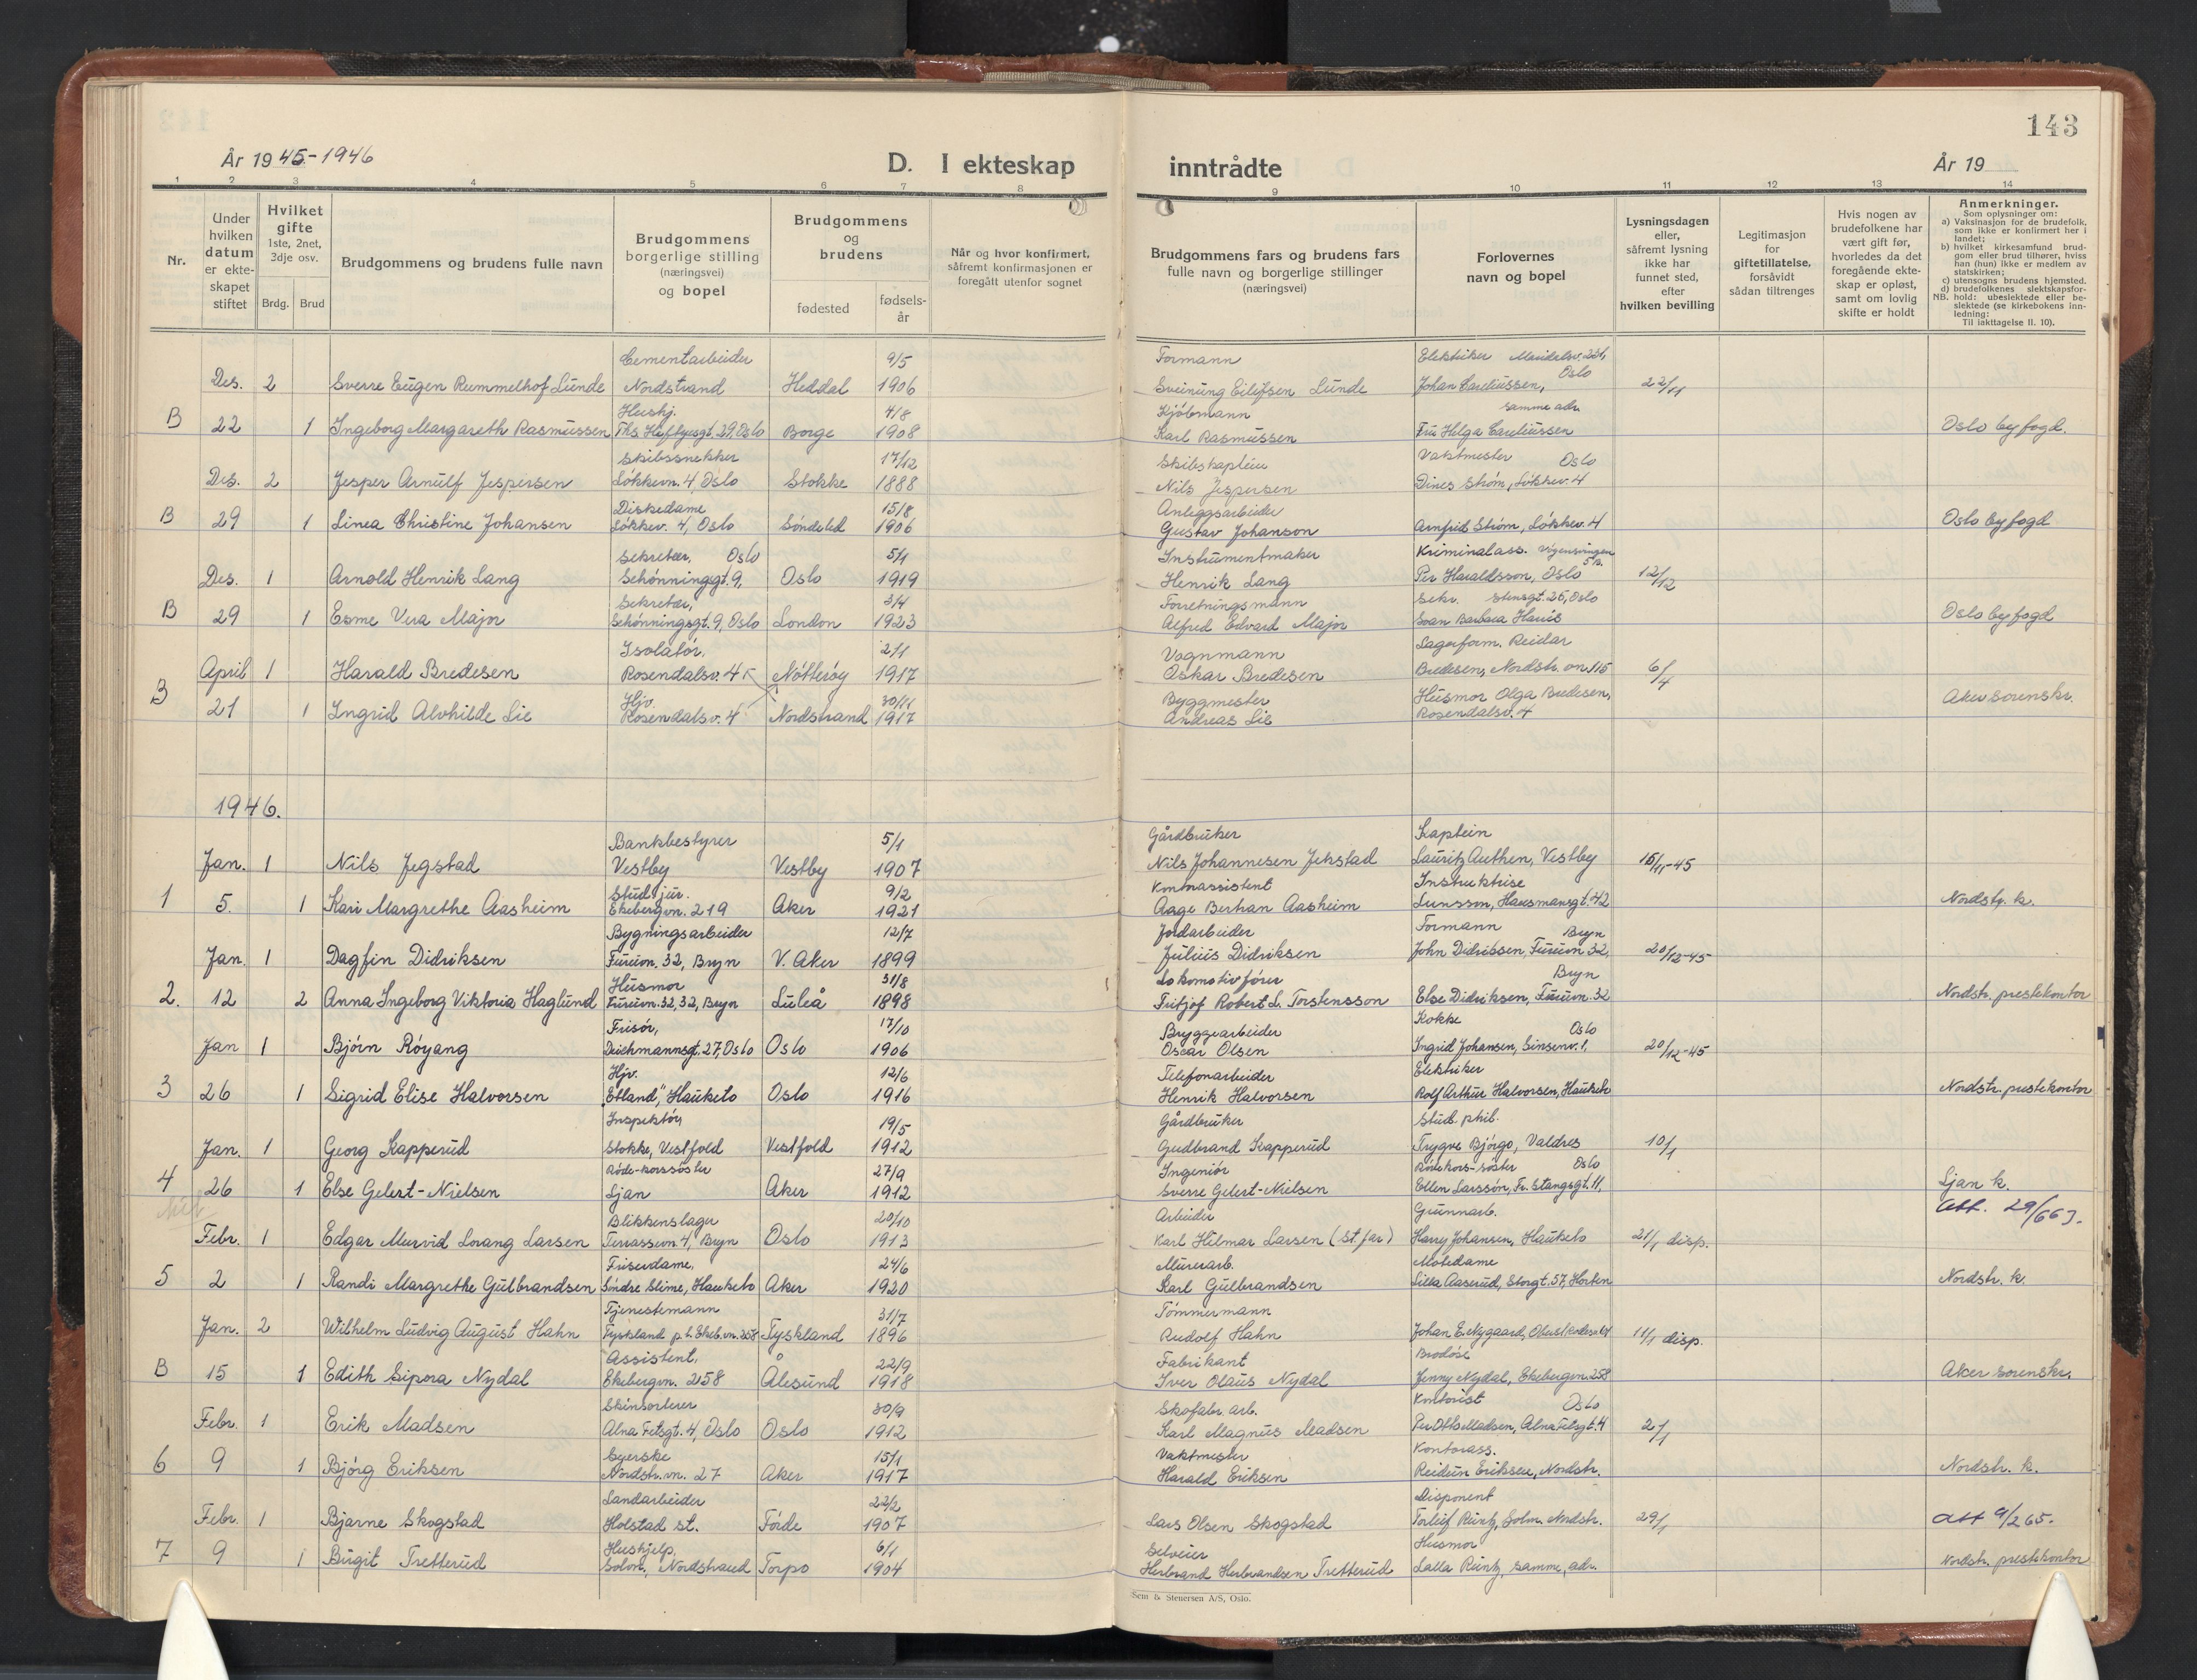 143
År 1945-1946
D. I ekteskap inntrådte
År 19
1 2 3 4 5 6 7 8 9 10 11 12 13 14
Nr.
Under hvilken datum er ekteskapet stiftet
Hvilket gifte 1ste, 2net, 3dje osv.
Brdg. Brud
Brudgommens og brudens fulle navn
Brudgommens borgerlige stilling (næringsvei) og bopel
Brudgommens og brudens
fødested
fødselsår
Når og hvor konfirmert, såfremt konfirmasjonen er foregått utenfor sognet
Brudgommens fars og brudens fars fulle navn og borgerlige stillinger (næringsvei)
Forlovernes navn og bopel
Lysningsdagen eller, såfremt lysning ikke har funnet sted, efter hvilken bevilling
Legitimasjon for giftetillatelse, forsåvidt sådan tiltrenges
Hvis nogen av brudefolkene har vært gift før, hvorledes da det foregående ekteskap er opløst, samt om lovlig skifte er holdt
Anmerkninger.
Som oplysninger om:
a) Vaksinasjon for de brudefolk, som ikke er konfirmert her i landet;
b) hvilket kirkesamfund brudgom eller brud tilhører, hviss han (hun) ikke er medlem av statskirken;
c) utensogns brudens hjemsted.
d) brudefolkenes slektskapsforhold: ubeslektede eller beslektede (se kirkebokens innledning:
NB.
Til iakttagelse II. 10).
Cementarbeider 9/5 Formann Elektriker Maridalsv. 226,
Des. 2 Sverre Eugen Rummelhof Lunde Nordstrand Heddal 1906 Sveinung Eilifsen Lunde Johan Careliussen, Oslo 22/11
Hushj. 4/8 Kjøbmann samme adr.
B 22 1 Ingeborg Margareth Rasmussen Ths. Heftyesgt. 29, Oslo Borge 1908 Karl Rasmussen Fru Helga Careliussen Oslo byfogd.
Skibssnekker 17/12 Skibskaptein Vaktmester Oslo
Des. 2 Jesper Arnulf Jespersen Løkkevn. 4, Oslo Stokke 1888 Nils Jespersen Dines Strøm, Løkkev. 4
Diskedame 15/8 Anleggsarbeider
B 29 1 Linea Christine Johansen Løkkev. 4, Oslo Søndeled 1906 Gustav Johanson Arnfrid Strøm, Løkkev. 4 Oslo byfogd
Sekretær, Oslo 5/1 Instrumentmaker Kriminalass.
Des. 1 Arnold Henrik Lang Schønningsgt. 9, Oslo 1919 Henrik Lang Per Haraldsson, Oslo 12/12
Sekretær, 3/4 Forretningsmann Sekr. Stensgt. 25, Oslo
B 29 1 Esme Vera Major Schønningsgt. 9, Oslo London 1923 Alfred Edvard Major Joan Barbara Harris Oslo byfogd
Isolatør, 2/1 Vognmann Lagerform. Reidar
April 1 Harald Bredesen Rosendalsv. 4 Nøtterøy 1917 Oskar Bredesen Bredesen, Nordstr.vn. 115 6/4
Hjv. 30/11 Byggmester Husmor Olga Bredesen,
B 21 1 Ingrid Alvhilde Lie Rosendalsv. 4 Nordstrand 1917 Andreas Lie Rosendalsv. 4 Aker sorenskr.
1946.
Bankbestyrer 5/1 Gårdbruker Kaptein
Jan. 1 Nils Jegstad Vestby Vestby 1907 Nils Johannesen Jekstad Lauritz Authen, Vestby 15/11-45
Stud. jur. 9/2 Kontorassistent Instruktrise
1 5. 1 Kari Margrethe Aasheim Ekebergvn. 219 Aker 1921 Aage Berhan Aasheim Hausmansgt. 42 Nordstr. k.
Bygningsarbeider 12/7 Jordarbeider Formann Bryn
Jan. 1 Dagfin Didriksen Furuvn. 32, Bryn V. Aker 1899 Julius Didriksen John Didriksen, Furuvn. 32, 20/12-45
Husmor 31/8 Lokomotivfører Bryn
2. 12 2 Anna Ingeborg Viktoria Haglund Furuvn. 32, 32, Bryn Luleå 1898 Fritjof Robert L. Torstensson Else Didriksen, Furuvn. 32 Nordstr. prestekontor
Frisør, 17/10 Bryggearbeider Kokke Oslo
Jan 1 Bjørn Røyang Deichmannsgt. 27, Oslo Oslo 1906 Oscar Olsen Ingrid Johansen, Sinsenv. 1, 20/12-45
Hjv. 12/6 Telefonarbeider Elektriker
3 26 1 Sigrid Elise Halvorsen "Etland", Hauketo Oslo 1916 Henrik Halvorsen Rolf Arthur Halvorsen, Hauketo Nordstr. prestekontor
Inspektør, 19/5 Gårdbruker Stud. phil.
Jan. 1 Georg Kapperud Stokke, Vestfold Vestfold 1912 Gudbrand Kapperud Trygve Bjørgo, Valdres 10/1
Røde-korssøster 27/9 Ingeniør Rødekors-søster Oslo
4 26 1 Else Gelert-Nielsen Ljan Aker 1912 Sverre Gelert-Nielsen Ellen Larsson, Fr. Stangsgt. 11, Ljan k.
Att. 29/6 63.
Blikkenslager 20/10 Arbeider Grunnarb.
Febr. 1 Edgar Murvid Lorang Larsen Terrassevn. 4, Bryn Oslo 1913 Karl Hilmar Larsen (St.far) Harry Johansen, Hauketo 21/1 disp.
Friserdame, 24/6 Murerarb. Motedame
5 2 1 Randi Margrethe Gulbrandsen Søndre Slime, Hauketo Aker 1920 Karl Gulbrandsen Lilla Aaserud, Storgt. 57, Horten Nordstr. k.
Tjenestemann 31/7 Tømmermann
Jan. 2 Wilhelm Ludvig August Hahn Tyskland p.t. Ekeb.vn. 258 Tyskland 1896 Rudolf Hahn Johan E. Nygaard, 11/1 disp.
Assistent, 22/9 Fabrikant Brodøse
B 15 1 Edith Sipora Nydal Ekebergvn. 258 Ålesund 1918 Iver Olaus Nydal Jenny Nydal, Ekebergvn. 258 Aker sorenskr.
Skinsorterer 30/9 Skofabr. arb. Kontorist Oslo
Febr. 1 Erik Madsen Alna Feltsgt. 4, Oslo Oslo 1912 Karl Magnus Madsen Per Otto Madsen, Alna Feltsgt. 4 2/1
Syerske 15/1 Vaktmester Kontorass.
6 9 1 Bjørg Eriksen Nordstr.vn. 27 Aker 1917 Harald Eriksen Reidun Eriksen, Nordstr. Nordstr. k.
Landarbeider 22/2 Disponent
Febr. 1 Bjarne Skogstad Holstad st. Førde 1907 Lars Olsen Skogstad Torleif Runtz, Solvn. Nordstr. 29/1 att 9/2 65.
Hushjelp, 6/1 Selveier Husmor
7 9 1 Birgit Tretterud Solvn., Nordstrand Torpo 1904 Herbrand Herbrandsen Tretterud Lalla Runtz, samme adr. Nordstr. prestekontor
Sem & Stenersen A/S, Oslo.